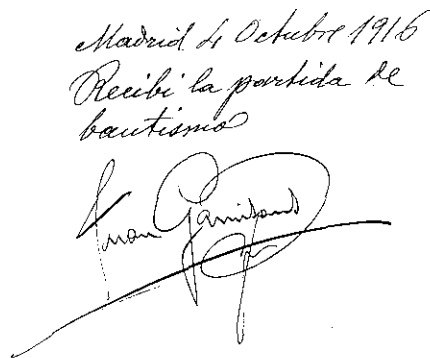 Madrid 4 Octubre 1916
Recibi la partida de
bautismo
Juan